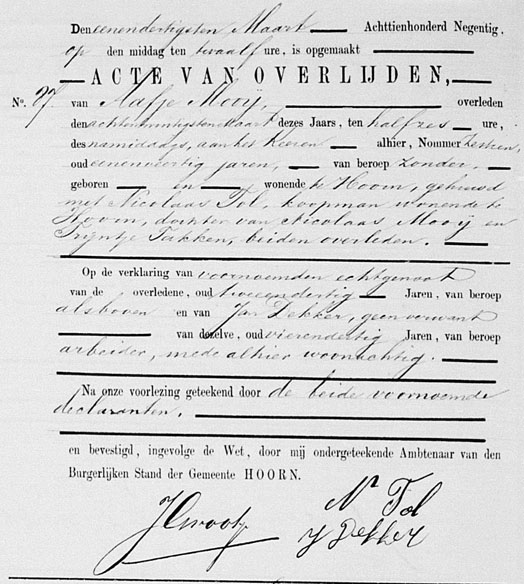 Den eenendertigsten Maart Achttienhonderd Negentig,
op den middag ten twaalf ure, is opgemaakt
ACTE VAN OVERLIJDEN,
No. 97 van Aafje Mooij, overleden
den achtentwintigsten Maart dezes Jaars, ten half zes ure,
des namiddags, aan het Keeren alhier, Nommer zestien,
oud eenenveertig jaren, van beroep zonder,
geboren en wonende te Hoorn, gehuwd
met Nicolaas Tol, koopman wonende te
Hoorn, dochter van Nicolaas Mooij en
Trijntje Takken, beiden overleden.
Op de verklaring van voornoemden echtgenoot
van de overledene, oud tweeendertig Jaren, van beroep
alsboven en van Jan Dekker, geen verwant
van dezelve, oud vierendertig Jaren, van beroep
arbeider, mede alhier woonachtig.
Na onze voorlezing geteekend door de beide voornoemde
declaranten.
en bevestigd, ingevolge de Wet, door mij ondergeteekende Ambtenaar van den
Burgerlijken Stand der Gemeente HOORN.
Ns Tol
J Dekker